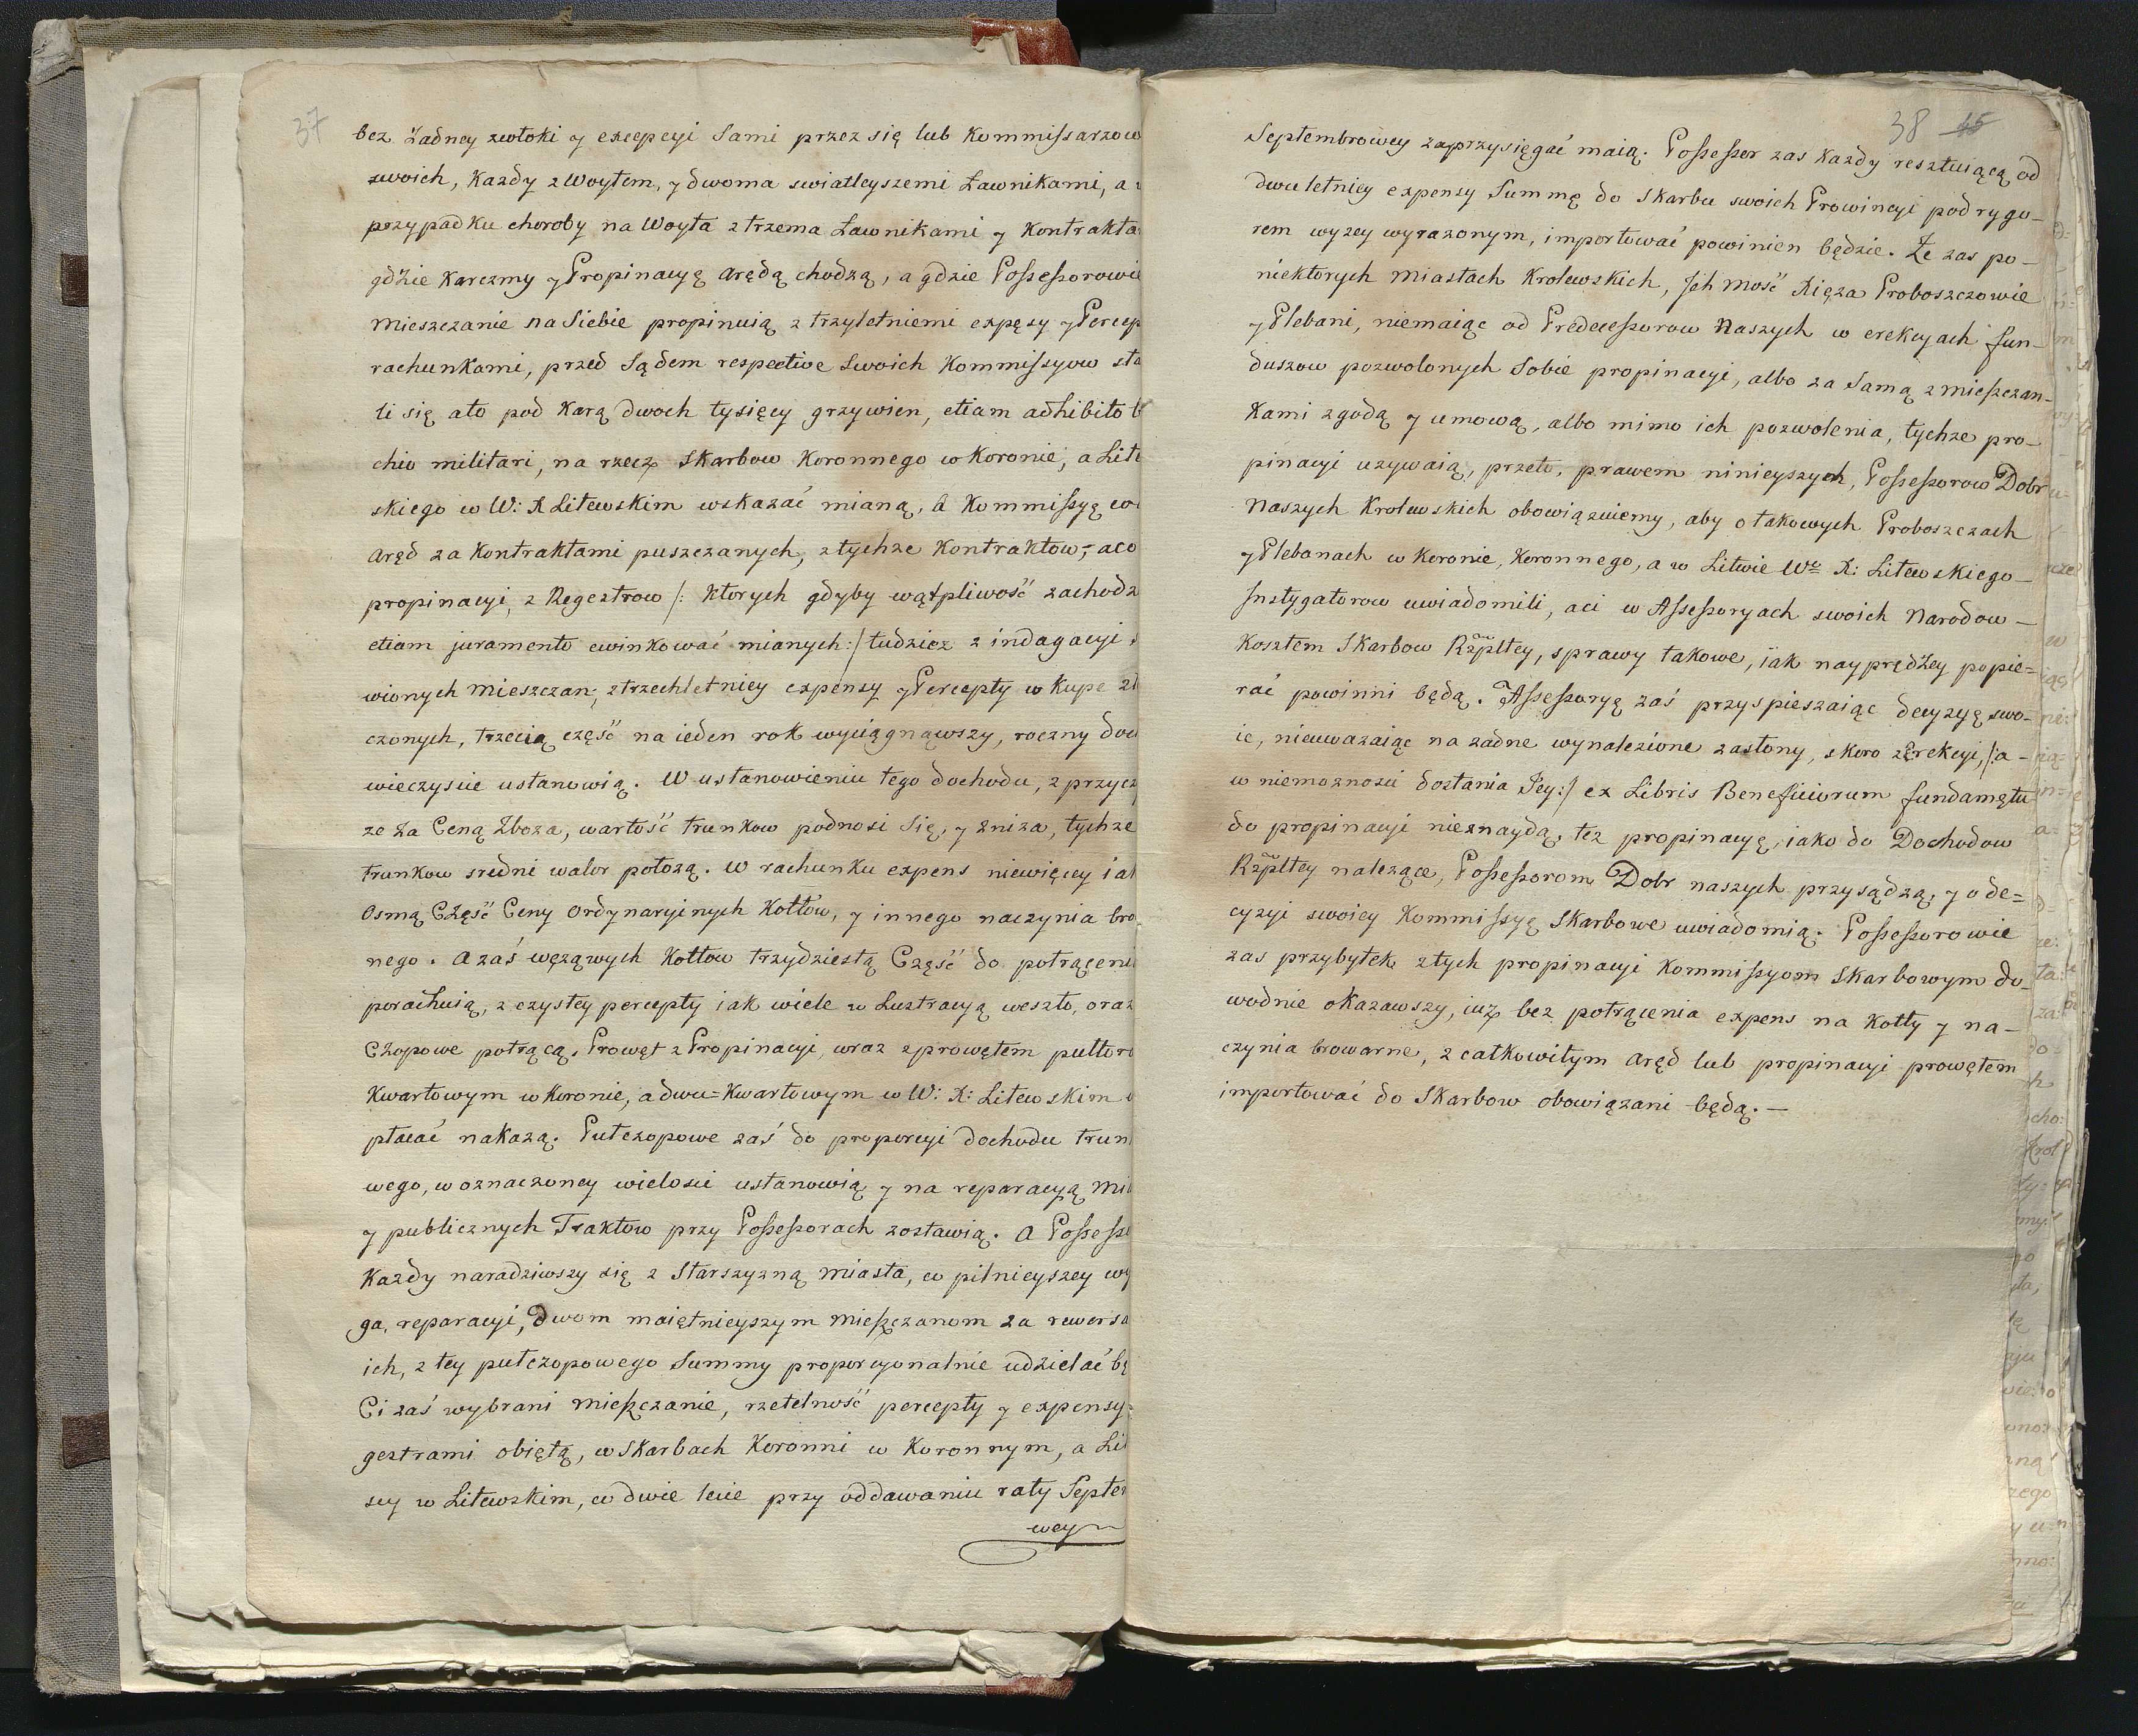 37
bez żadney zwłoki y excepcyi Sami przez się lub Kommissarzow
swoich, Każdy z Woytem, y dwoma swiatleyszemi Ławnikami, a
przypadku choroby na Woyta z trzema Ławnikami y Kontrakta
gdzie Karczmy y Propinacyę arędą chodzą, a gdzie Possessorowie
Mieszczanie na Siebie propinuią z trzyletniemi expęsy y Percep
rachunkami, przed Sądem respective Swoich Kommissyow sta
li się ato pod Karą dwoch tysięcy grzywien, etiam adhibito b
chio militari, na rzecz Skarbow Koronnego w Koronie, a Lite
skiego w W: X Litewskim wskazać mianą, A Kommissyę
aręd za Kontraktami puszczanych, z tychże Kontraktow, aco
propinacyi, z Regestrow /: Ktorych gdyby wątpliwość zachodz
etiam juramento ewinkować mianych :/ tudzież z indagacyi
wionych Mieszczan, z trzechletniey expensy y Percepty w Kupe zł
czonych, trzecią część na ieden rok wyciągnąwszy, roczny doch
wieczyscie ustanowią. W ustanowieniu tego dochodu, z przycz
ze za Ceną Zboża, wartość trunkow podnosi się, y zniza, tychże
trunkow sredni walor położą. W rachunku expens niewięcey iak
osmą Część Ceny Ordynaryinych Kotłow, y innego naczynia bro
nego. A zaś wężawych Kotłow trzydziestą Część do potrącenia
porachuią, z czystey percepty iak wiele w Lustracyą weszło, oraz
Czopowe potrącą. Prowęt z Propinacyi, wraz z prowętem pułtora
Kwartowym w Koronie, a dwu=Kwartowym w W: X: Litewskim
płacać nakażą. Pułczopowe zaś do proporcyi dochodu trun
wego, w oznaczoney wielosci ustanowią y na reparacyą
y publicznych Traktow przy Possessorach zostawią. A Possess
Każdy naradziwszy się z Starszyzną miasta, co pilnieyszey wy
ga, reparacyi, dwom maiętnieyszym mieszczanom za rewersa
ich, z tey pułczopowego Summy proporcyonalnie udzielać bę
Ci zaś wybrani mieszczanie, rzetelność percepty y expensy
gestrami obiętą, w Skarbach Koronni w Koronnym, a Lit
scy w Litewskim, co dwie lecie przy oddawaniu raty Septem
wey
38 45
Septembrowey zaprzysięgać maią. Possessor zas Każdy resztuiącą od
dwuletniey expensy Summę do Skarbu swoich Prowincyi pod rygo-
rem wyzey wyrazonym, importować powinien będzie. Ze zas po-
niektorych Miastach Krolewskich, Jch Mość Xięża Proboszczowie
y Plebani, niemaiąc od Predecessorow Naszych w erekcyach fun-
duszow pozwolonych Sobie propinacyi, albo za Samą z mieszczan-
Kami zgodą y umową, albo mimo ich pozwolenia, tychże pro-
pinacyi uzywaią, przeto, prawem ninieyszych, Possessorow Dobr
Naszych Krolewskich obowiązuiemy, aby o takowych Proboszczach
y Plebanach w Koronie, Koronnego, a w Litwie We X: Litewskiego
Jnstygatorow uwiadomili, aci w Assessoryach swoich Narodow
Kosztem Skarbow Rzpltey, sprawy takowe, iak nayprędzey popie=
rać powinni będą. Assessorye zaś przyspieszaiąc decyzyę swo-
ie, nieuważaiąc na żadne wynalezione zasłony, skoro z Erekcyi, /: a-
w niemoznosci dostania Jey :/ ex Libris Beneficiorum fundamętu
do propinacyi nieznaydą, tęz propinacyę, iako do Dochodow
Rzpltey nalezące, Possessorom Dobr naszych przysądzą, y o de=
cyzyi swoiey Kommissyę Skarbowe uwiadomią. Possessorowie
zas przybytek z tych propinacyi Kommissyom Skarbowym do-
wodnie okazawszy, iuz bez potrącenia expens na Kotły y na-
czynia browarne, z całkowitym aręd lub propinacyi prowętem
importować do Skarbow obowiązani będą.